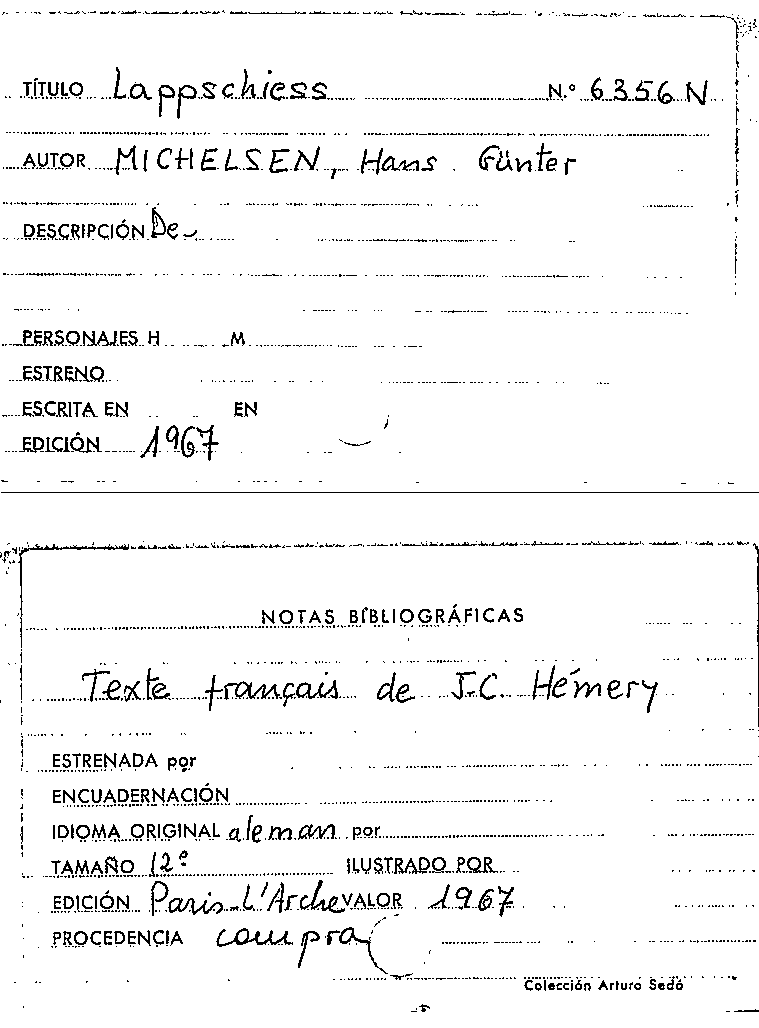 TÍTULO Lappschiess N.º 6356 N
AUTOR MICHELSEN, Hans Günter
DESCRIPCIÓN De
PERSONAJES H M
ESTRENO
ESCRITA EN EN
EDICIÓN 1967
NOTAS BIBLIOGRÁFICAS
Texte français de J-C. Hémery
ESTRENADA por
ENCUADERNACIÓN
IDIOMA ORIGINAL aleman por
TAMAÑO 12º ILUSTRADO POR
EDICIÓN Paris-L'Arche VALOR 1967
PROCEDENCIA compra
Colección Arturo Sedó